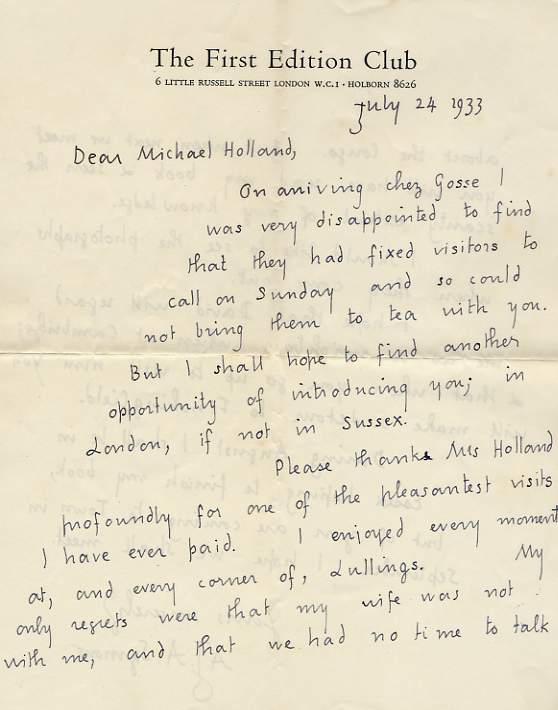 The First Edition Club
6 LITTLE RUSSELL STREET LONDON W.C.1 · HOLBORN 8626
July 24 1933
Dear Michael Holland,
On arriving chez Gosse I
was very disappointed to find
that they had fixed visitors to
call on Sunday and so could
not bring them to tea with you.
But I shall hope to find another
opportunity of introducing you; in
London, if not in Sussex.
Please thank Mrs Holland
profoundly for one of the pleasantest visits
I have ever paid. I enjoyed every moment
at, and every corner of, Lullings. My
only regrets were that my wife was not
with me, and that we had no time to talk